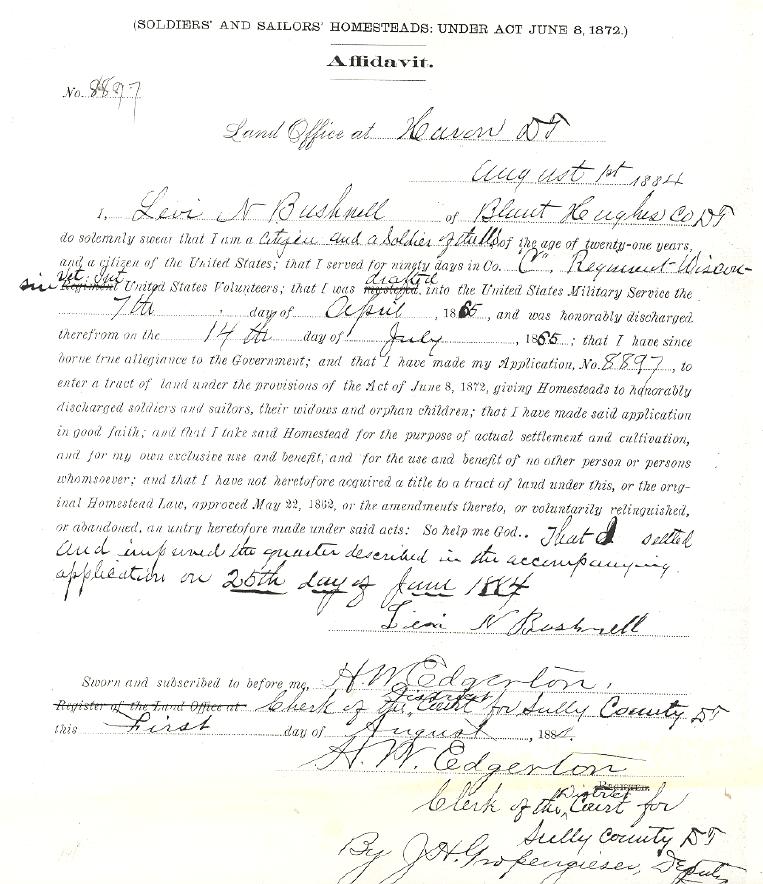 (SOLDIERS' AND SAILORS' HOMESTEADS: UNDER ACT JUNE 8, 1872.)
Affidavit.
No. 8897
Land Office at Huron DT
August 1st 1884
I, Levi N Bushnell of Blunt Hughes Co DT
do solemnly swear that I am a citizen and a Soldier of the US of the age of twenty-one years,
and a citizen of the United States; that I served for ninety days in Co. "C", Regiment Wiscon-
sin Vet. Inf Regiment United States Volunteers; that I was mustered drafted into the United States Military Service the
7th day of April, 1865, and was honorably discharged
therefrom on the 14th day of July, 1865; that I have since
borne true allegiance to the Government; and that I have made my Application, No. 8897, to
enter a tract of land under the provisions of the Act of June 8, 1872, giving Homesteads to honorably
discharged soldiers and sailors, their widows and orphan children; that I have made said application
in good faith; and that I take said Homestead for the purpose of actual settlement and cultivation,
and for my own exclusive use and benefit, and for the use and benefit of no other person or persons
whomsoever; and that I have not heretofore acquired a title to a tract of land under this, or the orig-
inal Homestead Law, approved May 22, 1862, or the amendments thereto, or voluntarily relinquished,
or abandoned, an entry heretofore made under said acts: So help me God.. That I settled
and improved the quarter described in the accompanying
application on 25th day of June 1884
Levi N Bushnell
Sworn and subscribed to before me, H. W. Edgerton,
Register of the Land Office at Clerk of the District Court for Sully County DT
this First day of August, 1884.
H. W. Edgerton
Register.
Clerk of the District Court for
Sully County DT
By J. H. Gropengieser, Deputy